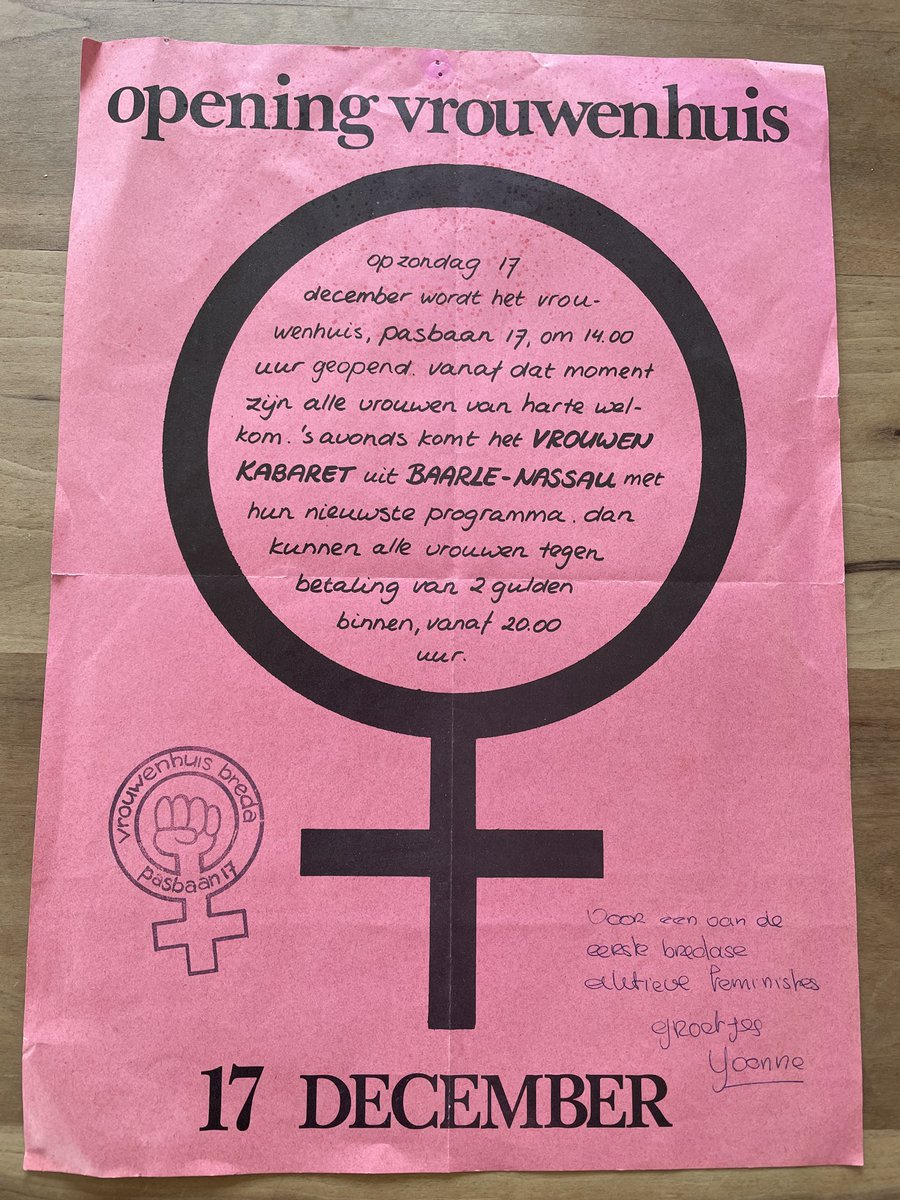 opening vrouwenhuis
op zondag 17
december wordt het vrou-
wenhuis, pasbaan 17, om 14.00
uur geopend. vanaf dat moment
zijn alle vrouwen van harte wel-
kom. 's avonds komt het VROUWEN
KABARET uit BAARLE-NASSAU met
hun nieuwste programma. dan
kunnen alle vrouwen tegen
betaling van 2 gulden
binnen, vanaf 20.00
uur.
vrouwenhuis breda
pasbaan 17
Voor een van de
eerste bredase
aktieve feministes
groetjes
Yvonne
17 DECEMBER